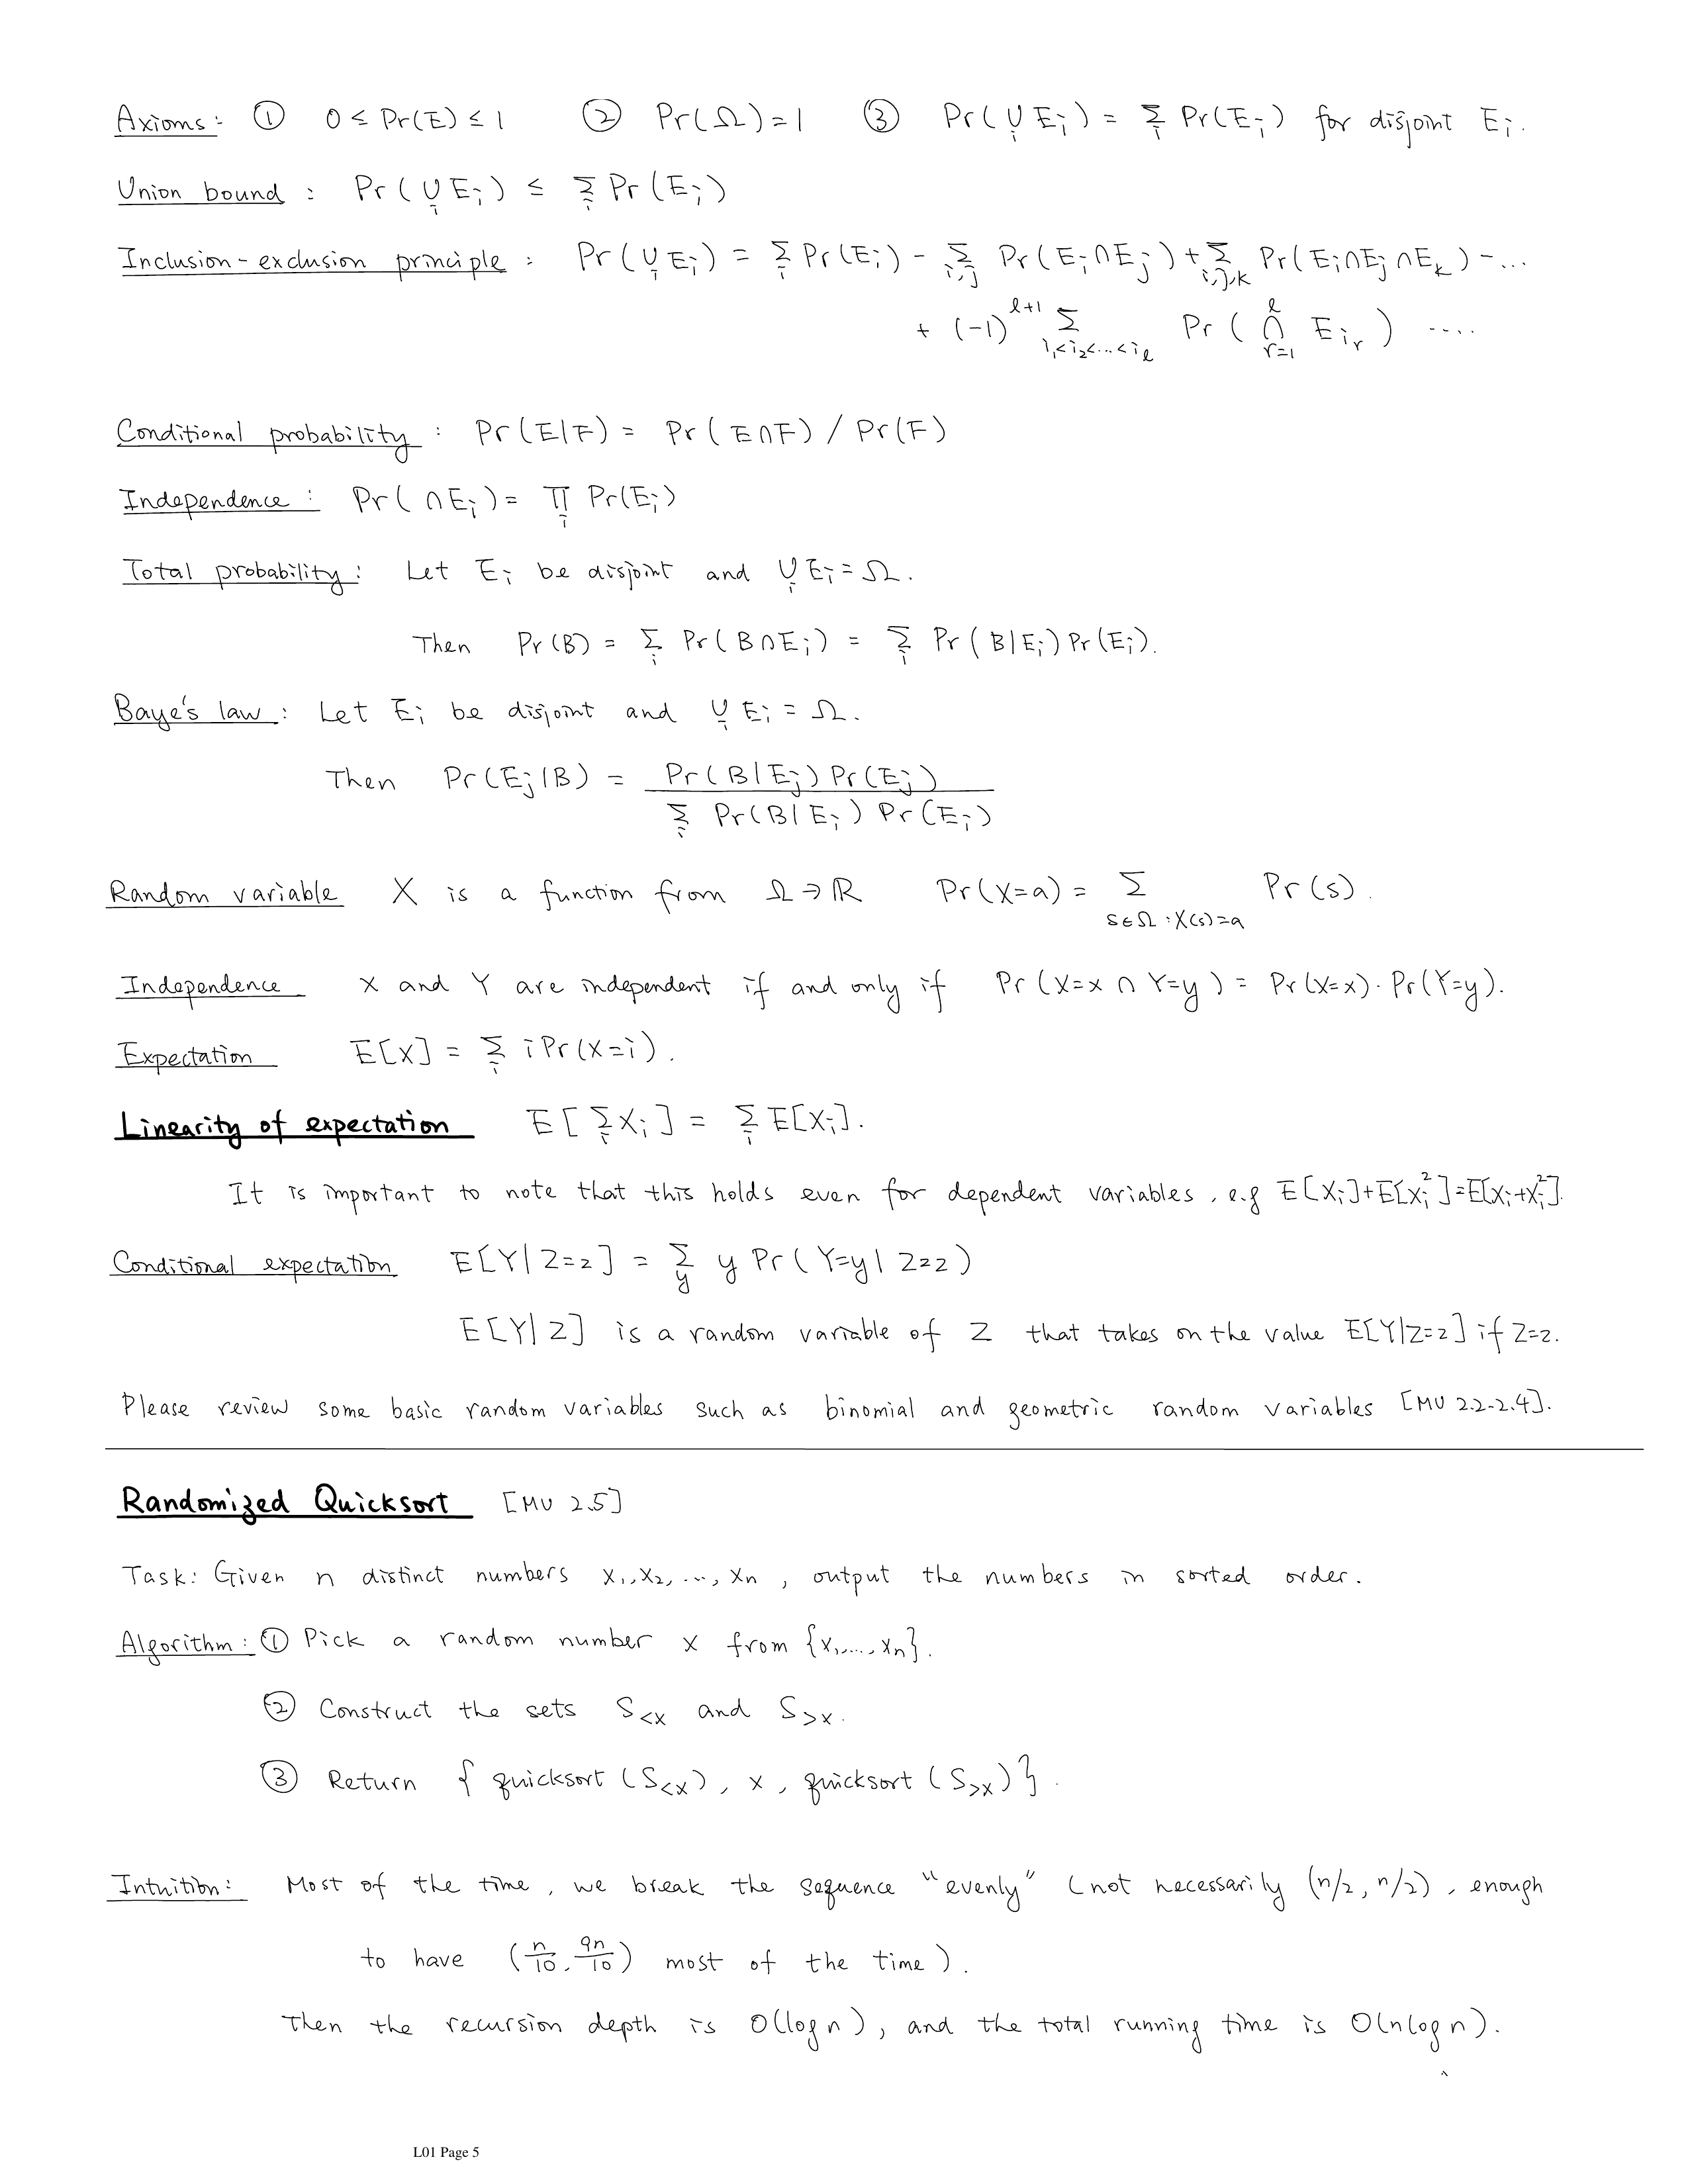 Axioms: ① 0 ≤ Pr(E) ≤ 1 ② Pr(Ω)=1 ③ Pr(∪_i E_i) = Σ_i Pr(E_i) for disjoint E_i.
Union bound : Pr(∪_i E_i) ≤ Σ_i Pr(E_i)
Inclusion-exclusion principle : Pr(∪_i E_i) = Σ_i Pr(E_i) - Σ_{i,j} Pr(E_i∩E_j) + Σ_{i,j,k} Pr(E_i∩E_j∩E_k) - ...
+ (-1)^{ℓ+1} Σ_{i_1<i_2<...<i_ℓ} Pr(∩_{r=1}^{ℓ} E_{i_r}) ....
Conditional probability : Pr(E|F) = Pr(E∩F) / Pr(F)
Independence : Pr(∩E_i) = Π_i Pr(E_i)
Total probability: Let E_i be disjoint and ∪_i E_i = Ω.
Then Pr(B) = Σ_i Pr(B∩E_i) = Σ_i Pr(B|E_i) Pr(E_i).
Baye's law : Let E_i be disjoint and ∪_i E_i = Ω.
Then Pr(E_j|B) = Pr(B|E_j) Pr(E_j) / Σ_i Pr(B|E_i) Pr(E_i)
Random variable X is a function from Ω→ℝ Pr(X=a) = Σ_{s∈Ω:X(s)=a} Pr(s).
Independence X and Y are independent if and only if Pr(X=x ∩ Y=y) = Pr(X=x)·Pr(Y=y).
Expectation E[X] = Σ_i i Pr(X=i).
Linearity of expectation E[Σ_i X_i] = Σ_i E[X_i].
It is important to note that this holds even for dependent variables, e.g E[X_i]+E[X_i^2]=E[X_i+X_i^2].
Conditional expectation E[Y|Z=z] = Σ_y y Pr(Y=y|Z=z)
E[Y|Z] is a random variable of Z that takes on the value E[Y|Z=z] if Z=z.
Please review some basic random variables such as binomial and geometric random variables [MU 2.2-2.4].
Randomized Quicksort [MU 2.5]
Task: Given n distinct numbers x_1, x_2, ..., x_n , output the numbers in sorted order.
Algorithm: ① Pick a random number x from {x_1,...,x_n}.
② Construct the sets S_{<x} and S_{>x}.
③ Return { quicksort (S_{<x}), x, quicksort (S_{>x}) }.
Intuition: Most of the time, we break the sequence "evenly" (not necessarily (n/2, n/2), enough
to have (n/10, 9n/10) most of the time).
Then the recursion depth is O(log n), and the total running time is O(n log n).
L01 Page 5